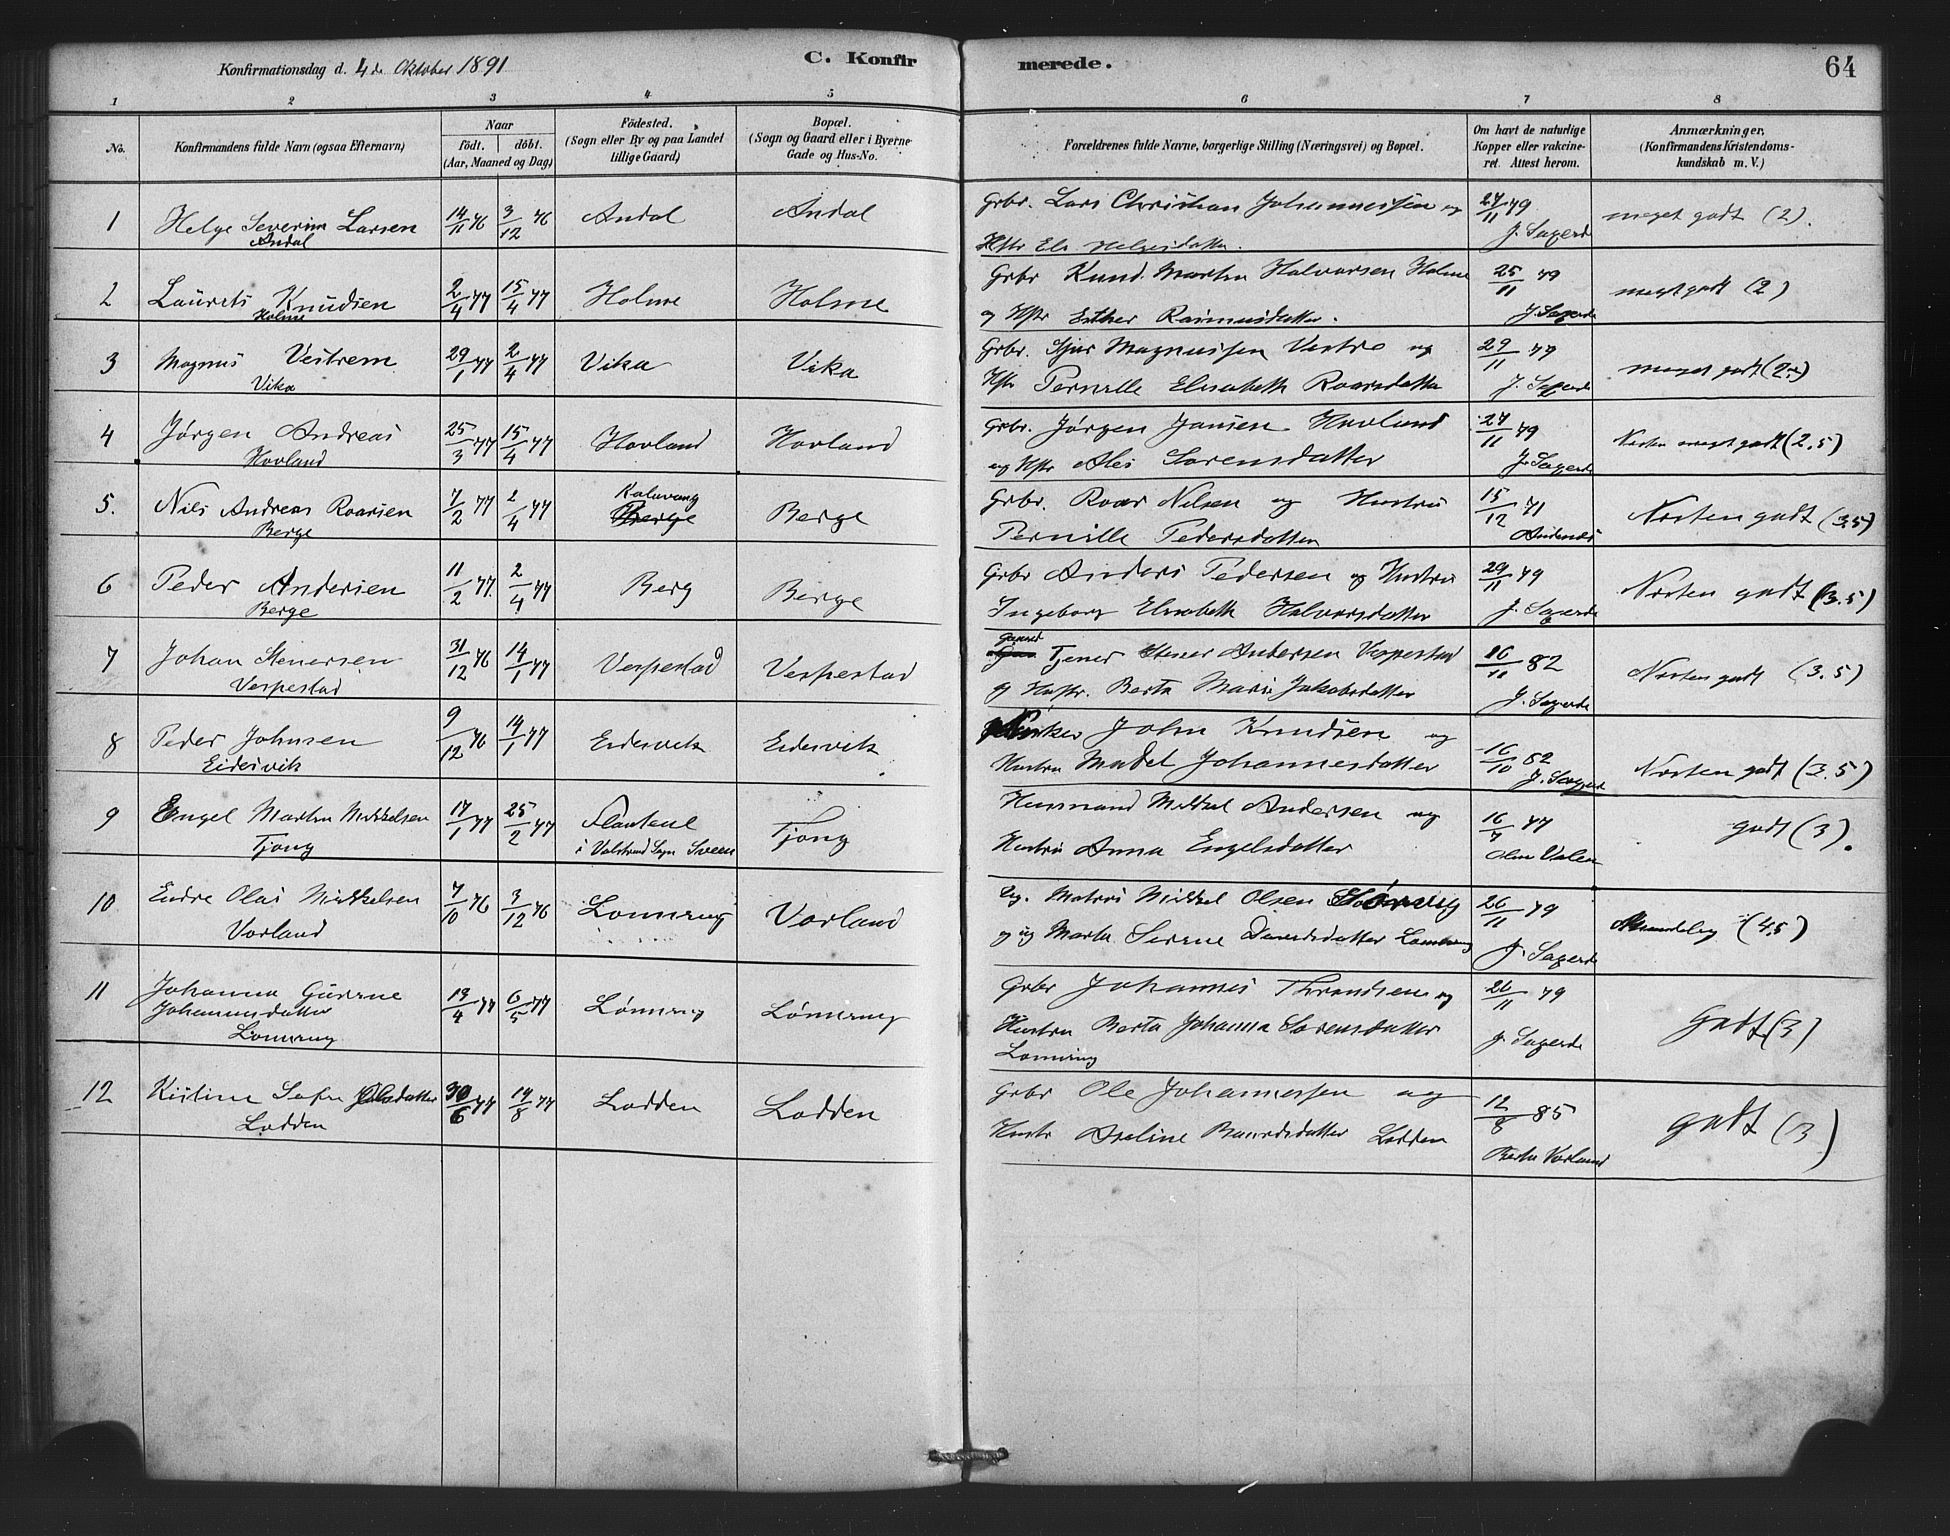 Konfirmationsdag d. 4de Oktober 1891
C. Konfirmerede.
64
1 2 3 4 5 6 7 8
No.
Konfirmandens fulde Navn (ogsaa Efternavn)
Naar
födt. döbt.
(Aar, Maaned og Dag)
Födested.
(Sogn eller By og paa Landet
tillige Gaard)
Bopæl.
(Sogn og Gaard eller i Byerne
Gade og Hus-No.
Forældrenes fulde Navne, borgerlige Stilling (Næringsvei) og Bopæl.
Om havt de naturlige
Kopper eller vakcine-
ret. Attest herom.
Anmærkninger.
(Konfirmandens Kristendoms-
kundskab m. V.)
1 Helge Severin Larsen 14/11 76 3/12 76 Andal Andal Grbr. Lars Christian Johannessen og 27/11 79 meget godt (2).
Andal Hstr Helgesdatter. J. Sagerde
2 Laurits Knudsen 2/4 77 15/4 77 Holme Holme Grbr Knud Martin Halvorsen Holme 25/11 79 meget godt (2)
Holme og Hstr Esther Rasmusdatter. J. Sagerde
3 Magnus Vestrem 29/1 77 2/4 77 Vika Vika Grbr. Magnussen og 29/11 79 meget godt
Vika Hstr Pernille Elisabeth Roarsdatter J. Sagerde
4 Jørgen Andreas 25/3 77 15/4 77 Hovland Hovland Grbr. Jørgen Jansen Hovland 27/11 79 Næsten meget godt (2.5)
Hovland og Hstr Sørensdatter J. Sagerde
5. Nils Andreas Roarsen 7/2 77 2/4 77 Berge Berge Grbr. Roar Nilsen og Hustru 15/12 Næsten godt (3.5)
Berge Pernille Pedersdatter
6 Peder Andersen 11/2 77. 2/4 77 Berg Berge Grbr Anders Pedersen og Hustru 29/11 79 Næsten godt (3.5)
Berge Ingeborg Elisabeth Halvorsdatter J. Sagerde
7 Johan Stenersen 31/12 76 14/1 77 Vespestad Vespestad Tjener Stener Andersen Vespestad 16/11 82 Næsten godt (3.5)
Vespestad og Hustr. Berta Marie Jakobsdatter J. Sagerde
8 Peder Johnsen 9/12 76 14/1 77 Eidesvik Eidesvik John Knudsen og 16/10 82 Næsten godt (3.5)
Eidesvik Hustru Madel Johannesdatter J. Sagerde
9 Engel Martin Mikkelsen 17/1 77 25/2 77 Tjong Husmand Mikkel Andersen og 16/7 77 godt (3).
Tjong i Valestrand Sogn Sveen Hustru Anna Engelsdatter Valen
10 Endre Olai Mikkelsen 7/10 76 3/12 76 Lønning Vorland Mikkel Olsen 26/11 79 (4.5)
Vorland Serine Davidsdatter J. Sagerde
11 Johanna Gurine 19/4 77 6/5 77 Lønning Lønning Grbr Johannes Throndsen og 26/11 79 Godt (3)
Johannesdatter Hustru Berta Johanna Sørensdatter J. Sagerde
Lønning Lønning
12 Kistine Olsdatter 30/6 77 19/8 77 Lodden Lodden Grbr Ole Johannessen og 12/8 85 godt (3)
Lodden Hustr Aseline Baardsdatter Lodden Berta Vorland